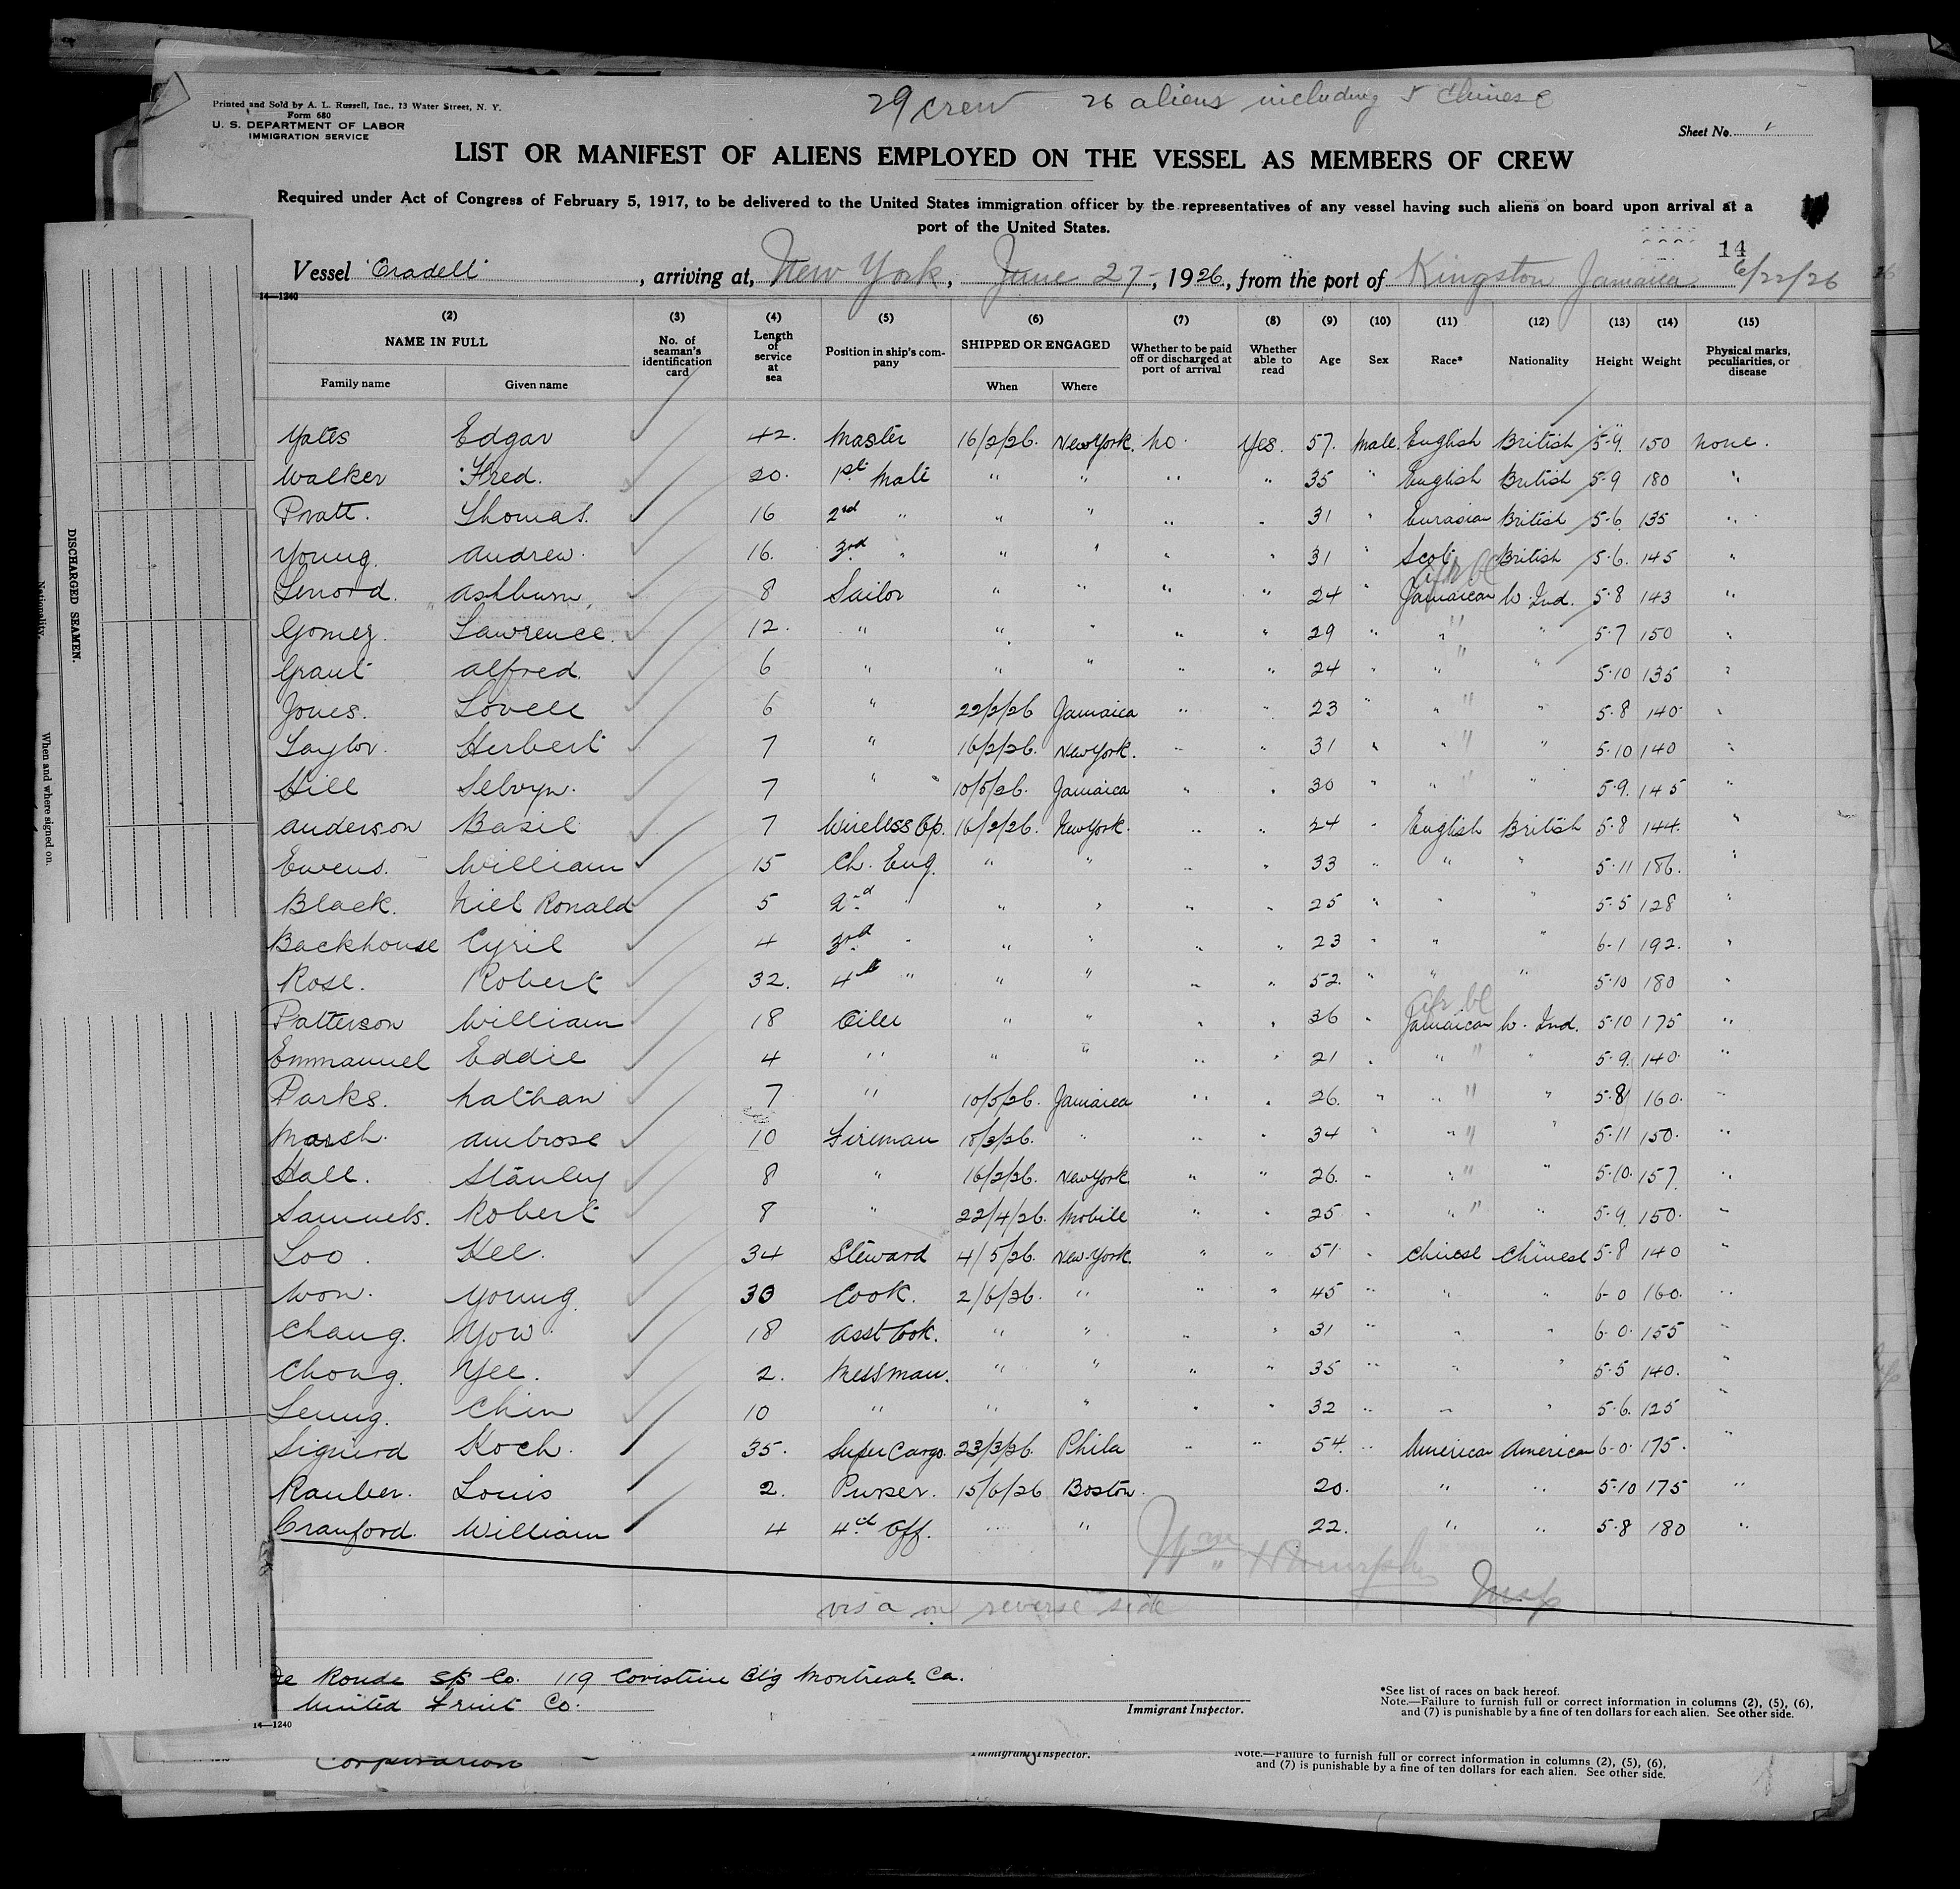 29 crew 26 aliens including 5 Chinese
Printed and Sold by A. L. Russell, Inc., 13 Water Street, N. Y.
Form 680
U. S. DEPARTMENT OF LABOR
IMMIGRATION SERVICE
Sheet No. 1
LIST OR MANIFEST OF ALIENS EMPLOYED ON THE VESSEL AS MEMBERS OF CREW
Required under Act of Congress of February 5, 1917, to be delivered to the United States immigration officer by the representatives of any vessel having such aliens on board upon arrival at a
port of the United States.
14
Vessel "Oradell", arriving at, New York, June 27, 1926, from the port of Kingston Jamaica 6/22/26
14—1240
(2) (3) (4) (5) (6) (7) (8) (9) (10) (11) (12) (13) (14) (15)
NAME IN FULL No. of seaman's identification card Length of service at sea Position in ship's company SHIPPED OR ENGAGED Whether to be paid off or discharged at port of arrival Whether able to read Age Sex Race* Nationality Height Weight Physical marks, peculiarities, or disease
Family name Given name When Where
Yates Edgar 42. Master 16/2/26. New York. No. Yes. 57. Male. English British 5-9. 150 None.
Walker Fred. 20. 1st Mate " " " " 35 " English British 5-9 180 "
Pratt. Thomas. 16 2nd " " " " " 31 " Eurasian British 5-6. 135 "
Young. Andrew. 16. 3rd " " " " " 31 " Scot. British 5-6. 145 "
Afr bl
Lenord. Ashburn. 8 Sailor " " " " 24 " Jamaican W. Ind. 5-8 143 "
Gomez. Lawrence. 12. " " " " " 29 " " " 5-7 150 "
Grant Alfred. 6 " " " " " 24 " " " 5-10 135 "
Jones. Lovell 6 " 22/2/26 Jamaica " " 23 " " " 5-8 140 "
Taylor. Herbert 7 " 16/2/26. New York. " " 31 " " " 5-10 140 "
Hill Selvyn. 7 " 10/5/26. Jamaica " " 30 " " " 5-9. 145 "
Anderson Basil 7 Wireless Op. 16/2/26. New York. " " 24 " English British 5-8 144. "
Ewens. William 15 Ch. Eng. " " " " 33 " " " 5-11 186. "
Black. Niel Ronald 5 2nd " " " " " 25 " " " 5-5 128 "
Backhouse Cyril 4 3rd " " " " " 23 " " " 6-1 192. "
Rose. Robert 32. 4th " " " " " 52. " " " 5-10 180 "
Afr bl
Patterson William 18 Oiler " " " " 36 " Jamaican W. Ind. 5-10 175 "
Emmanuel Eddie 4 " " " " " 21 " " " 5-9. 140. "
Parks. Nathan 7 " 10/5/26. Jamaica " " 26. " " " 5-8 160. "
Marsh. Ambrose 10 Fireman 18/3/26. " " " 34 " " " 5-11 150. "
Hall. Stanley 8 " 16/2/26. New York. " " 26. " " " 5-10. 157. "
Samuels. Robert 8 " 22/4/26. Mobile " " 25 " " " 5-9. 150. "
Loo. Hee. 34 Steward 4/5/26. New York. " " 51. " Chinese Chinese 5-8 140 "
Won. Young. 30 Cook. 2/6/26. " " " 45 " " " 6-0 160. "
Chang. Yow. 18 Asst Cook. " " " " 31 " " " 6-0. 155 "
Chong. Yee. 2. Messman. " " " " 35 " " " 5-5 140. "
Leung. Chin 10 " " " " " 32 " " " 5-6. 125 "
Sigurd Koch. 35. Super Cargo. 23/3/26. Phila " " 54. " American American 6-0. 175. "
Rauber. Louis 2. Purser. 15/6/26 Boston. 20. " " 5-10 175 "
Cranford. William 4 4th Off. " " 22. " " 5-8 180 "
Insp
visa on reverse side
Ronde S/S Co. 119 Coristine Bl'g Montreal. Ca.
United Fruit Co.
Immigrant Inspector.
*See list of races on back hereof.
Note.—Failure to furnish full or correct information in columns (2), (5), (6),
and (7) is punishable by a fine of ten dollars for each alien. See other side.
14—1240
Corporation
Immigrant Inspector.
Note.—Failure to furnish full or correct information in columns (2), (5), (6),
and (7) is punishable by a fine of ten dollars for each alien. See other side.
DISCHARGED SEAMEN.
Nationality.
When and where signed on.